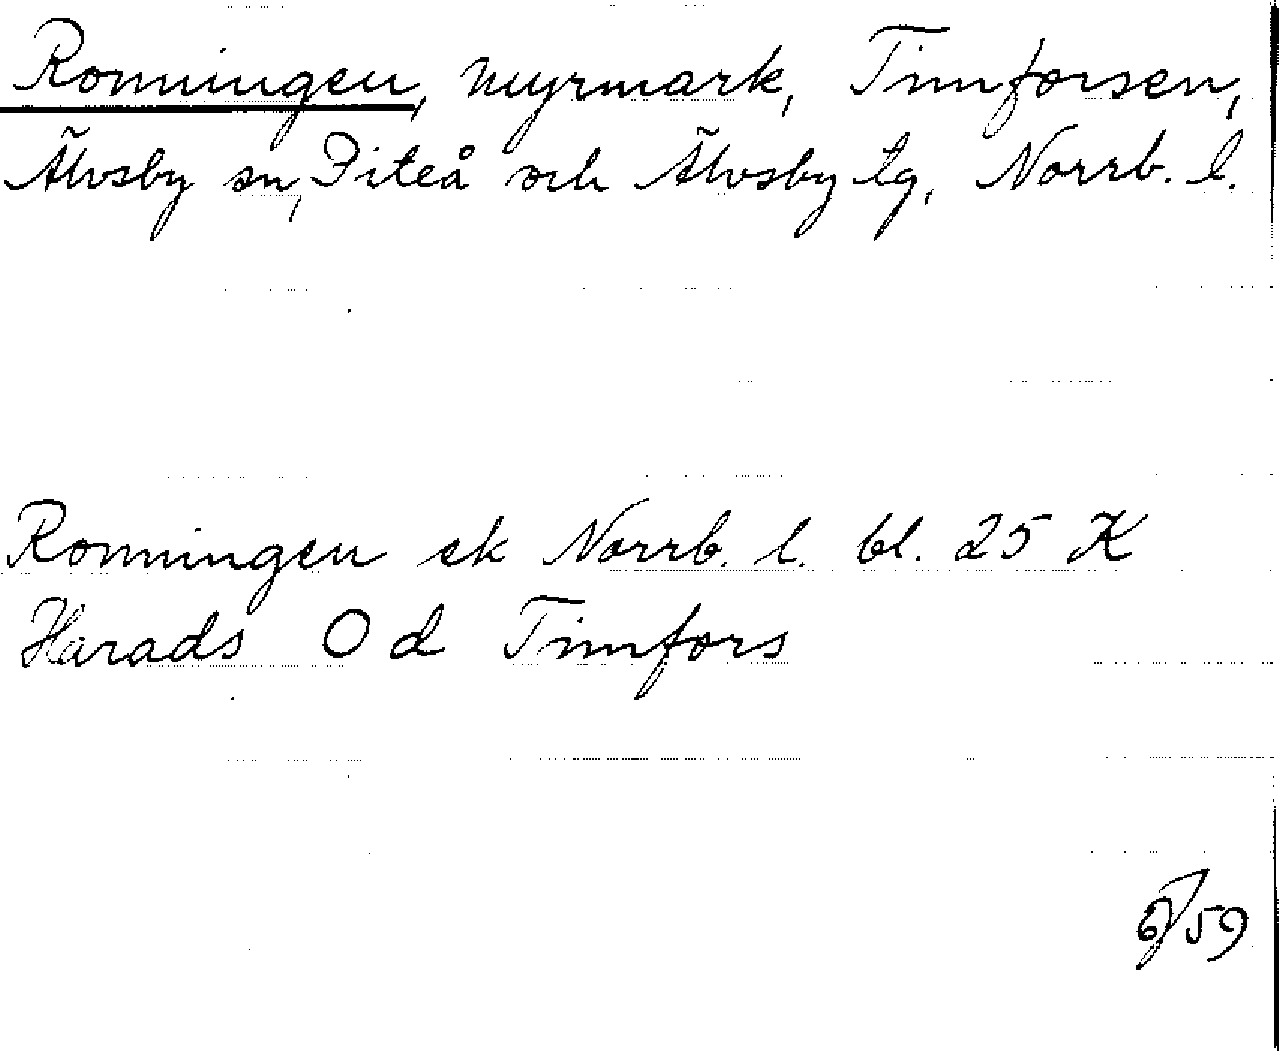 Ronningen, myrmark, Timforsen,
Älvsby sn, Piteå och Älvsby tg, Norrb. l.
Ronningen ek Norrb. l. bl. 25 K
Harads O d Timfors